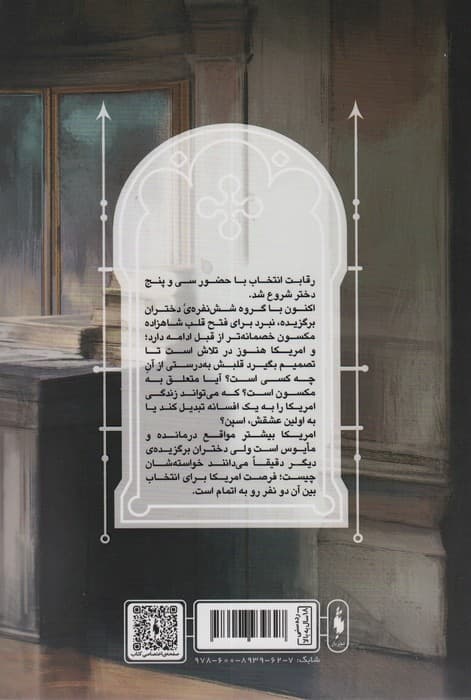 رقابت انتخاب با حضور سی و پنج
دختر شروع شد.
اکنون با گروه شش‌نفره‌ی دختران
برگزیده، نبرد برای فتح قلب شاهزاده
مکسون خصمانه‌تر از قبل ادامه دارد؛
و امریکا هنوز در تلاش است تا
تصمیم بگیرد قلبش به‌درستی از آنِ
چه کسی است؟ آیا متعلق به
مکسون است؟ که می‌تواند زندگی
امریکا را به یک افسانه تبدیل کند یا
به اولین عشقش، اسپن؟
امریکا بیشتر مواقع درمانده و
مأیوس است ولی دختران برگزیده‌ی
دیگر دقیقاً می‌دانند خواسته‌شان
چیست؛ فرصت امریکا برای انتخاب
بین آن دو نفر رو به اتمام است.
صفحه‌ی اختصاصی کتاب
رده سنی
۱۸ سال به بالا
شابک: ۹۷۸-۶۰۰-۸۹۳۹-۶۲-۷